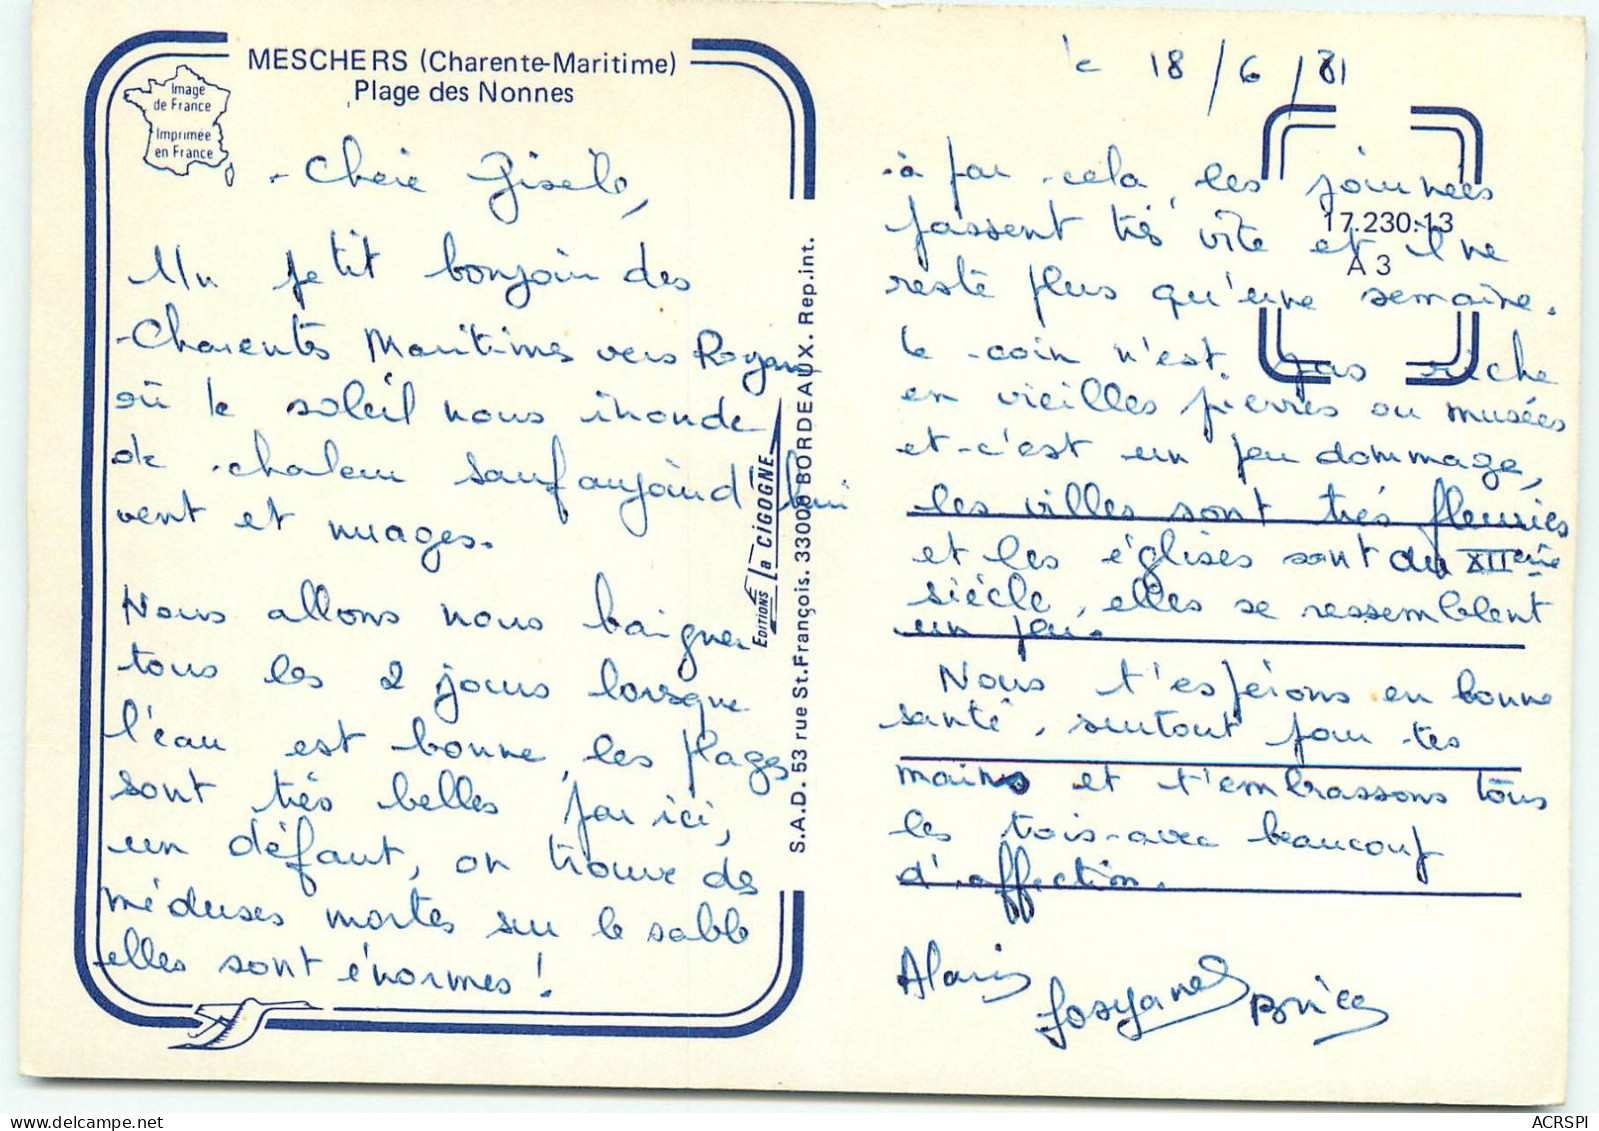 MESCHERS (Charente-Maritime)
Plage des Nonnes
Image
de France
Imprimée
en France
Chère Gisèle,
Un petit bonjour des
Charentes Maritimes vers Royan
où le soleil nous inonde
de chaleur sauf aujourd'hui
vent et nuages.
Nous allons nous baigner
tous les 2 jours lorsque
l'eau est bonne, les plages
sont très belles par ici,
un défaut, on trouve des
méduses mortes sur le sable
elles sont énormes !
EDITIONS la CIGOGNE
S.A.D. 53 rue St. François. 33000 BORDEAUX. Rep. int.
le 18/6/81
17.230.13
A 3
à par cela, les journées
passent très vite et il ne
reste plus qu'une semaine.
le coin n'est pas riche
en vieilles pierres ou musées
et c'est un peu dommage,
les villes sont très fleuries
et les églises sont du XIIème
siècle, elles se ressemblent
un peu.
Nous t'espérons en bonne
santé, surtout pour tes
mains et t'embrassons tous
les trois avec beaucoup
d'affection.
Alain Josyane Brice
ACRSPI